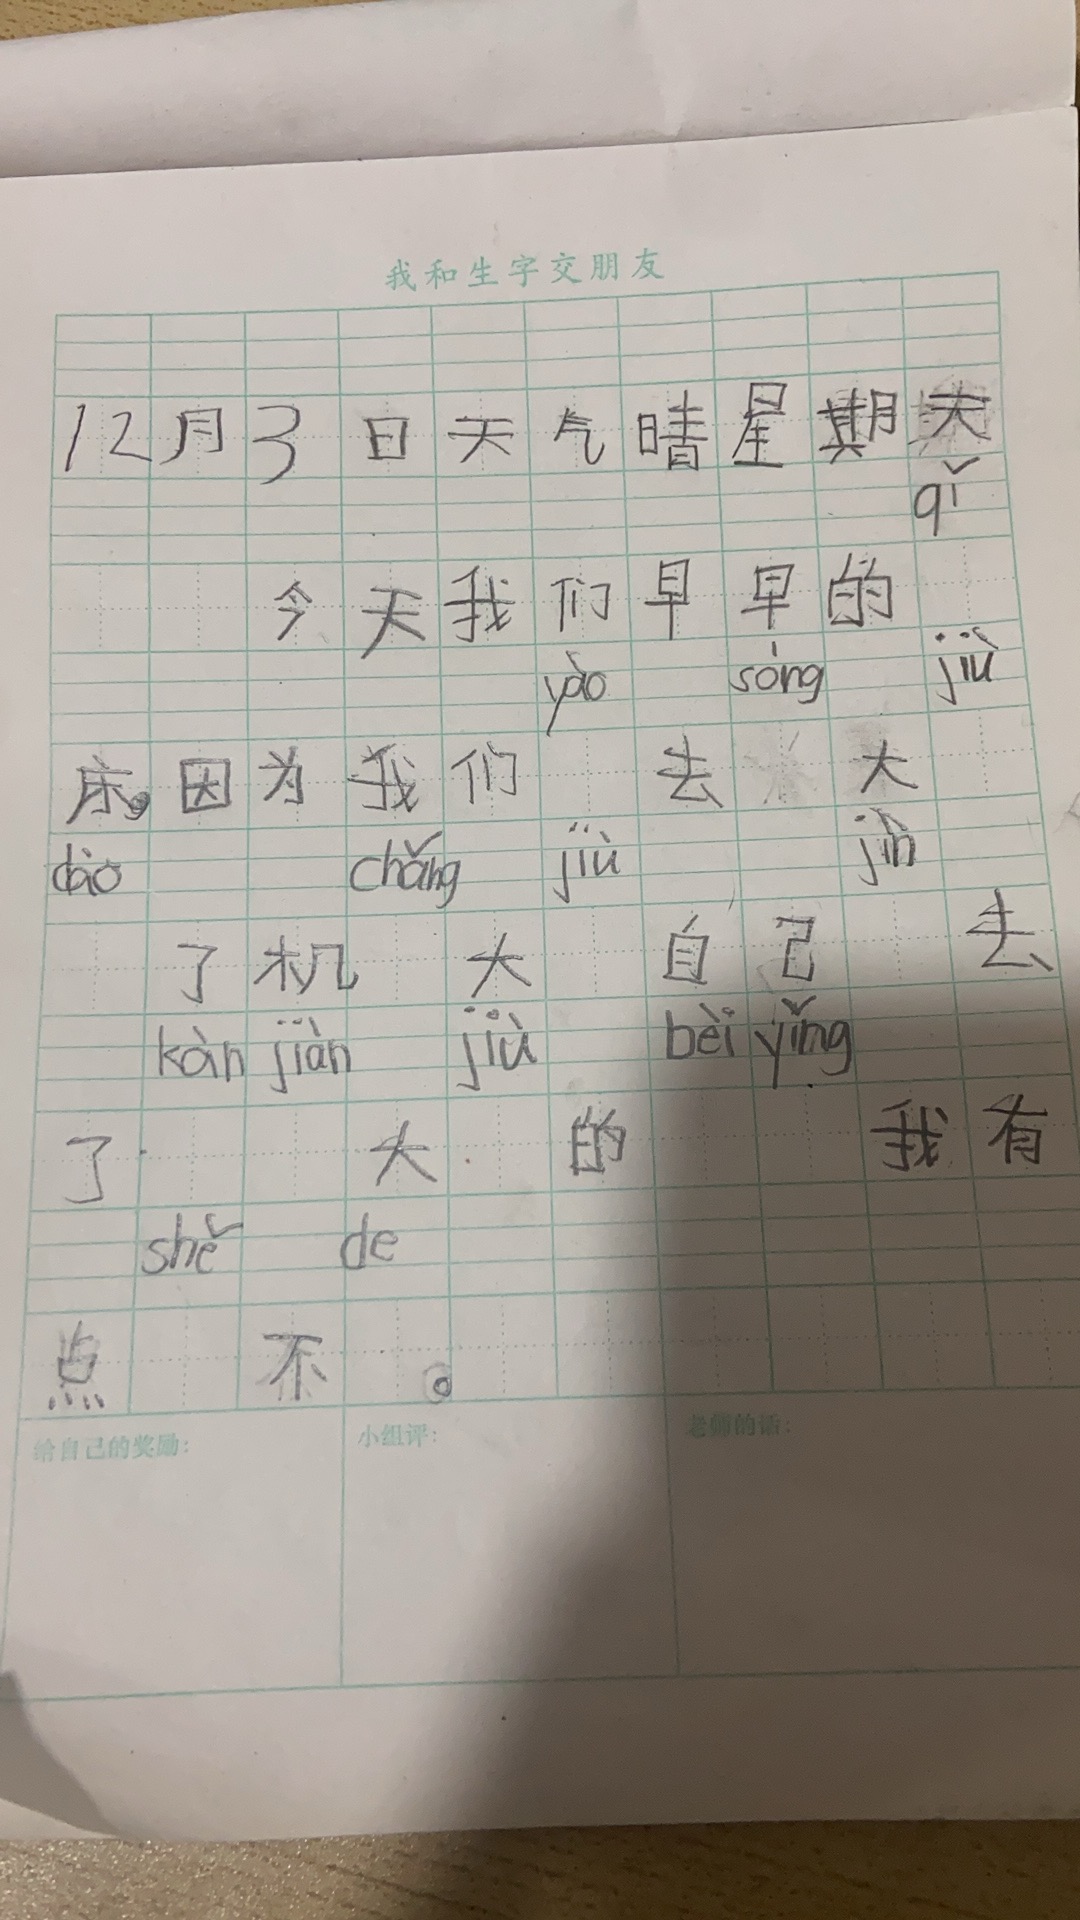 我和生字交朋友
12月3日天气晴星期天
qǐ
今天我们早早的
yào sóng jiù
床。因为我们 去 大
dào chǎng jiù jìn
了机 大 自己 去
kàn jiàn jiù bèi yǐng
了 大 的 我有
shě de
点 不 。
给自己的奖励： 小组评： 老师的话：